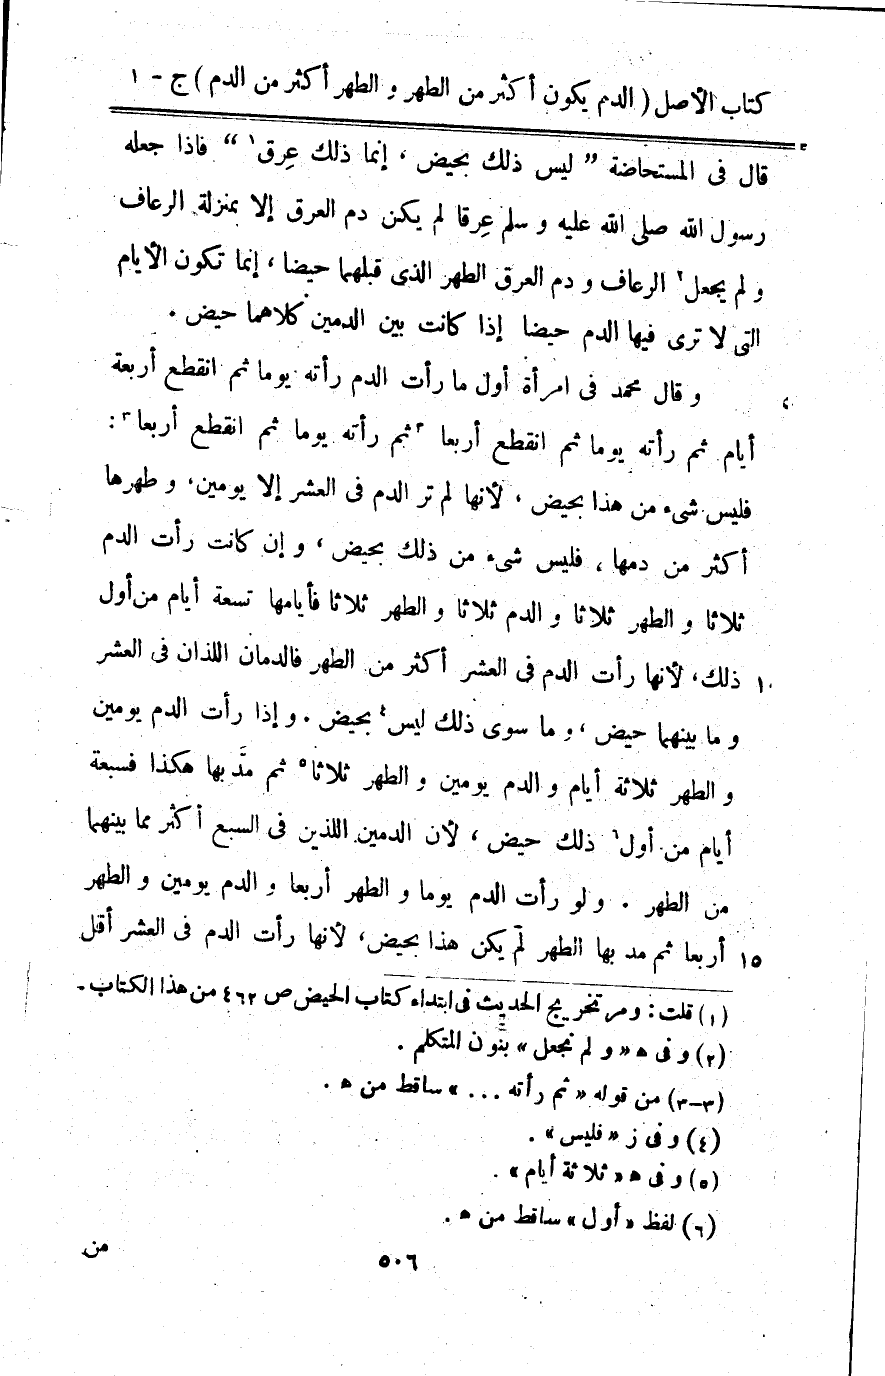 كتاب الأصل ( الدم يكون أكثر من الطهر و الطهر أكثر من الدم ) ج - ١
قال فى المستحاضة ” ليس ذلك بحيض ، إنما ذلك عِرق١ “ فاذا جعله
رسول الله صلى الله عليه و سلم عِرقا لم يكن دم العرق إلا بمنزلة الرعاف
و لم يجعل٢ الرعاف و دم العرق الطهر الذى قبلهما حيضا ، إنما تكون الأيام
التى لا ترى فيها الدم حيضا إذا كانت بين الدمين كلاهما حيض .
و قال محمد فى امرأة أول ما رأت الدم رأته يوما ثم انقطع أربعة
أيام ثم رأته يوما ثم انقطع أربعا ٣ثم رأته يوما ثم انقطع أربعا٣ :
فليس شىء من هذا بحيض ، لأنها لم تر الدم فى العشر إلا يومين ، و طهرها
أكثر من دمها ، فليس شىء من ذلك بحيض ، و إن كانت رأت الدم
ثلاثا و الطهر ثلاثا و الدم ثلاثا و الطهر ثلاثا فأيامها تسعة أيام من أول
١٠ ذلك ، لأنها رأت الدم فى العشر أكثر من الطهر فالدمان اللذان فى العشر
و ما بينهما حيض ، و ما سوى ذلك ليس٤ بحيض . و إذا رأت الدم يومين
و الطهر ثلاثة أيام و الدم يومين و الطهر ثلاثا٥ ثم مدَّ بها هكذا فسبعة
أيام من أول٦ ذلك حيض ، لأن الدمين اللذين فى السبع أكثر مما بينهما
من الطهر . و لو رأت الدم يوما و الطهر أربعا و الدم يومين و الطهر
١٥ أربعا ثم مد بها الطهر لم يكن هذا بحيض ، لأنها رأت الدم فى العشر أقل
(١) قلت : و مر تخريج الحديث فى ابتداء كتاب الحيض ص ٤٦٢ من هذا الكتاب .
(٢) و فى ه « و لم نجعل » بنون المتكلم .
(٣-٣) من قوله « ثم رأته ... » ساقط من ه .
(٤) و فى ز « فليس » .
(٥) و فى ه « ثلاثة أيام » .
(٦) لفظ « أول » ساقط من ه .
٥٠٦
من